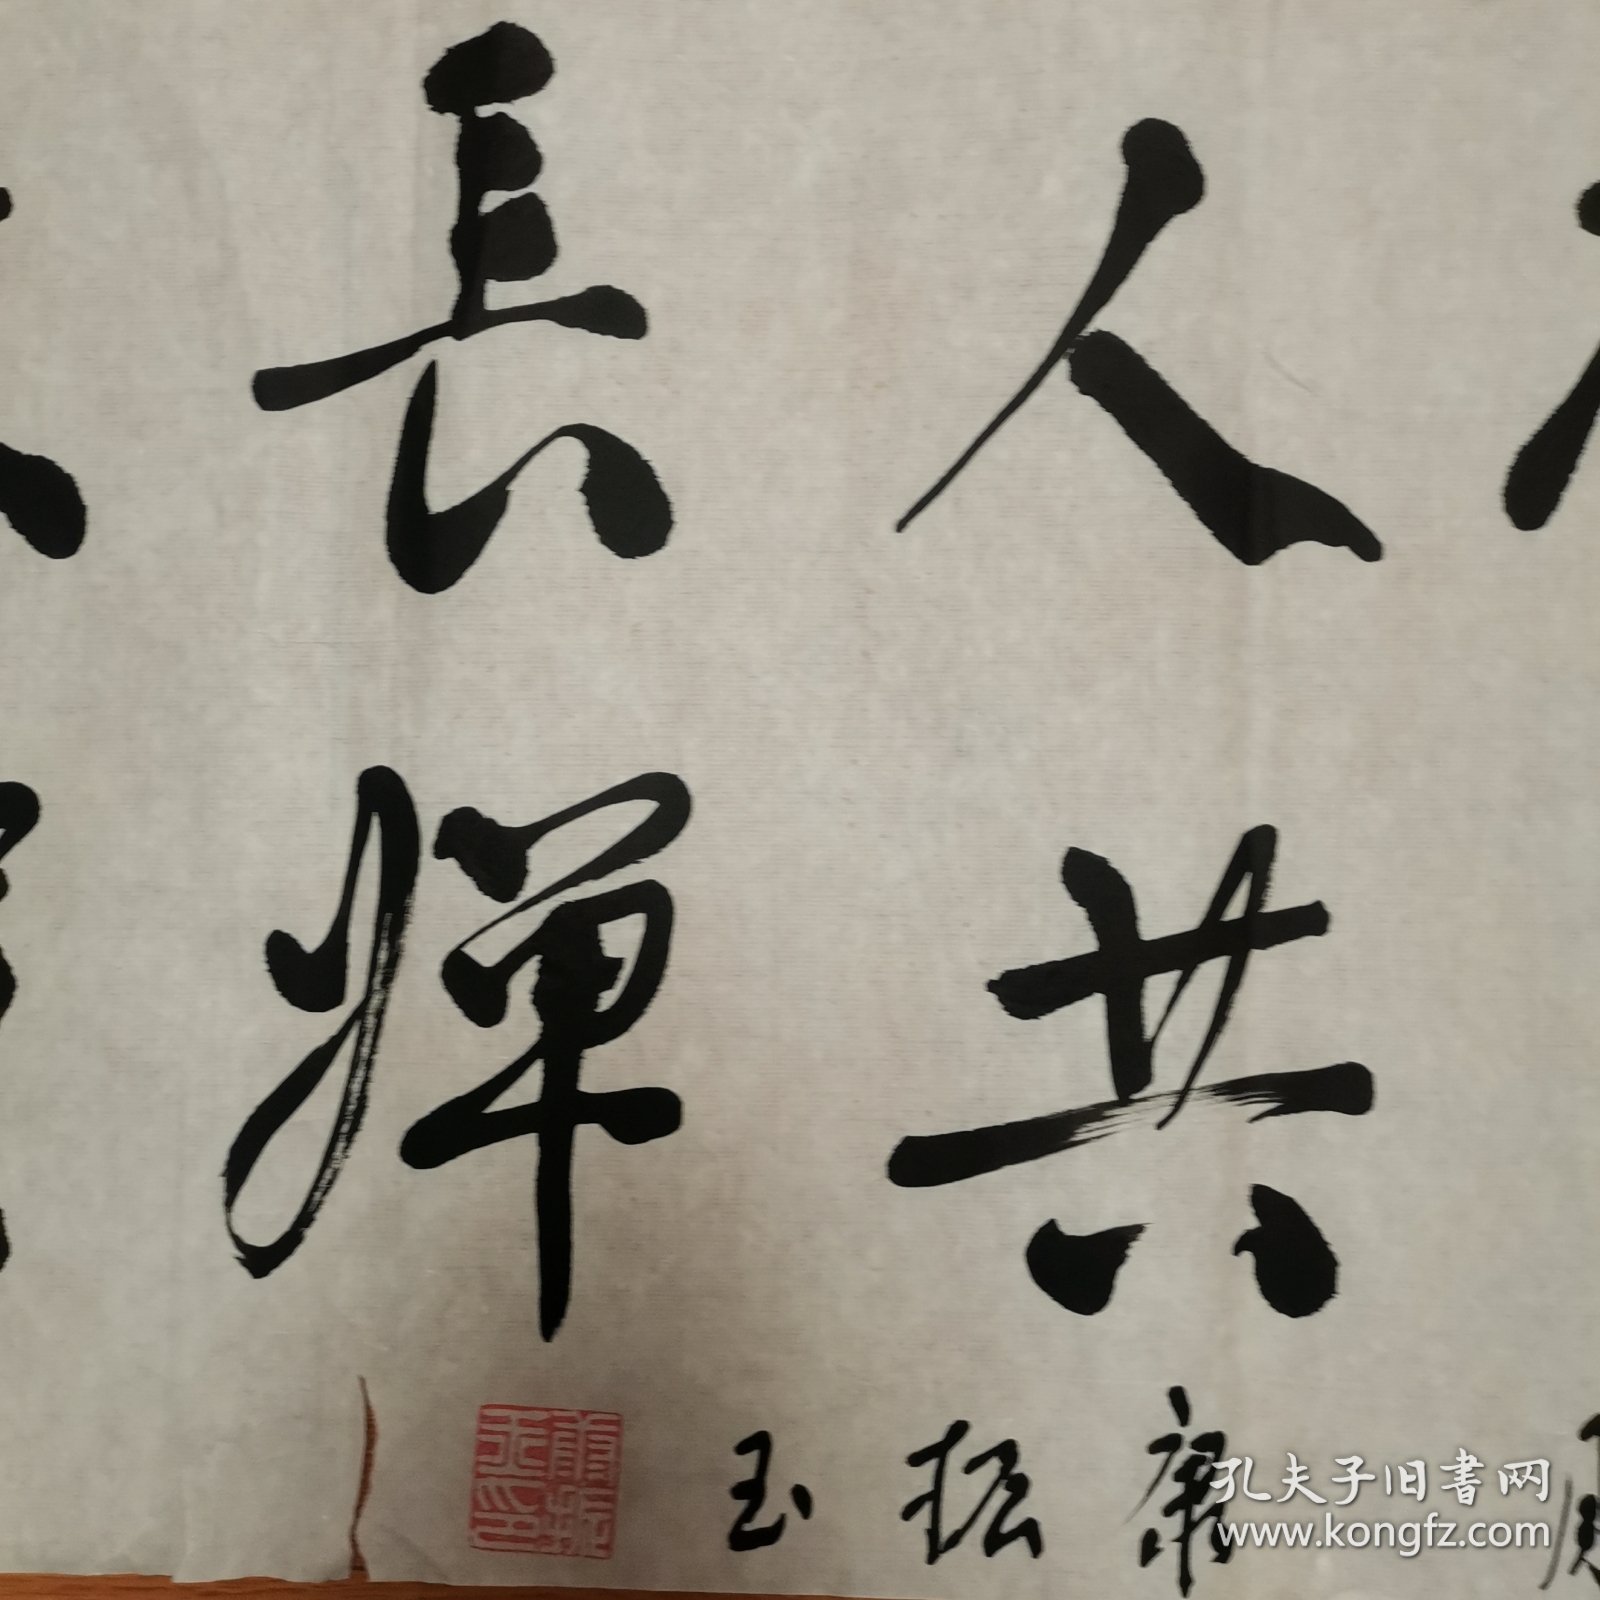 人長
共嬋
康振玉
孔夫子旧書网
www.kongfz.com